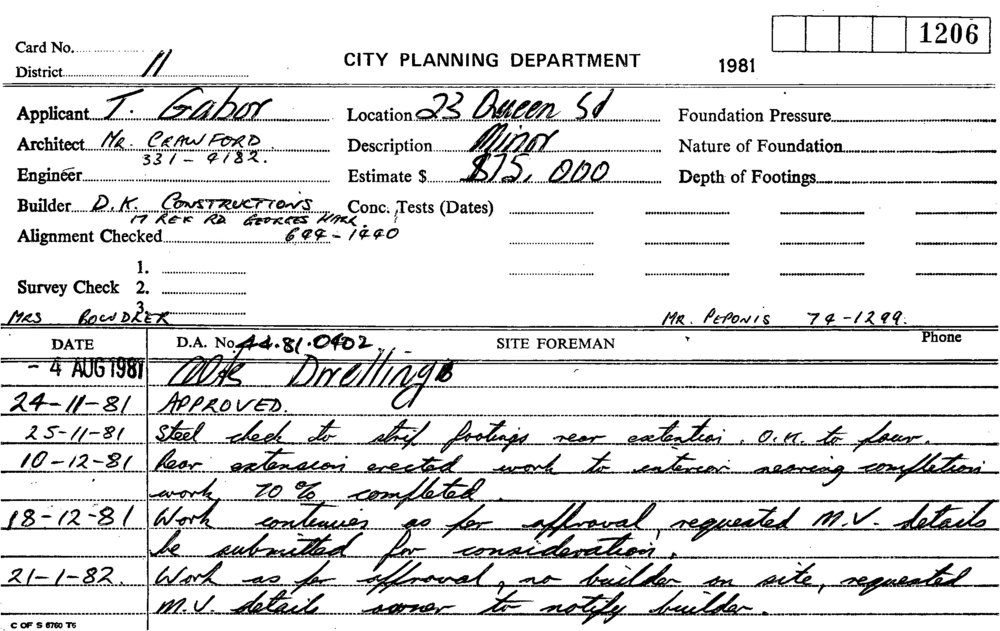 1206
Card No.
District 11
CITY PLANNING DEPARTMENT
1981
Applicant T. Gabor
Location 23 Queen St
Foundation Pressure
Architect MR. CRAWFORD
331-4182.
Description Minor
Nature of Foundation
Engineer
Estimate $ $15,000
Depth of Footings
Builder D.K. CONSTRUCTIONS
17 REX RD GEORGES HALL
Conc. Tests (Dates)
Alignment Checked 644-1440
1.
Survey Check 2.
3.
MRS BOWDRER
MR. PEPONIS 74-1299.
DATE
D.A. No. 44.81.0402
SITE FOREMAN
Phone
- 4 AUG 1981 Dwelling
24-11-81 APPROVED.
25-11-81 Steel check to strip footings rear extention. O.K. to pour.
10-12-81 Rear extension erected work to interior nearing completion
work 70% completed
18-12-81 Work continues as per approval, requested M.V. details
be submitted for consideration.
21-1-82. Work as per approval, no builder on site, requested
M.V. details owner to notify builder.
C OF S 6760 T5